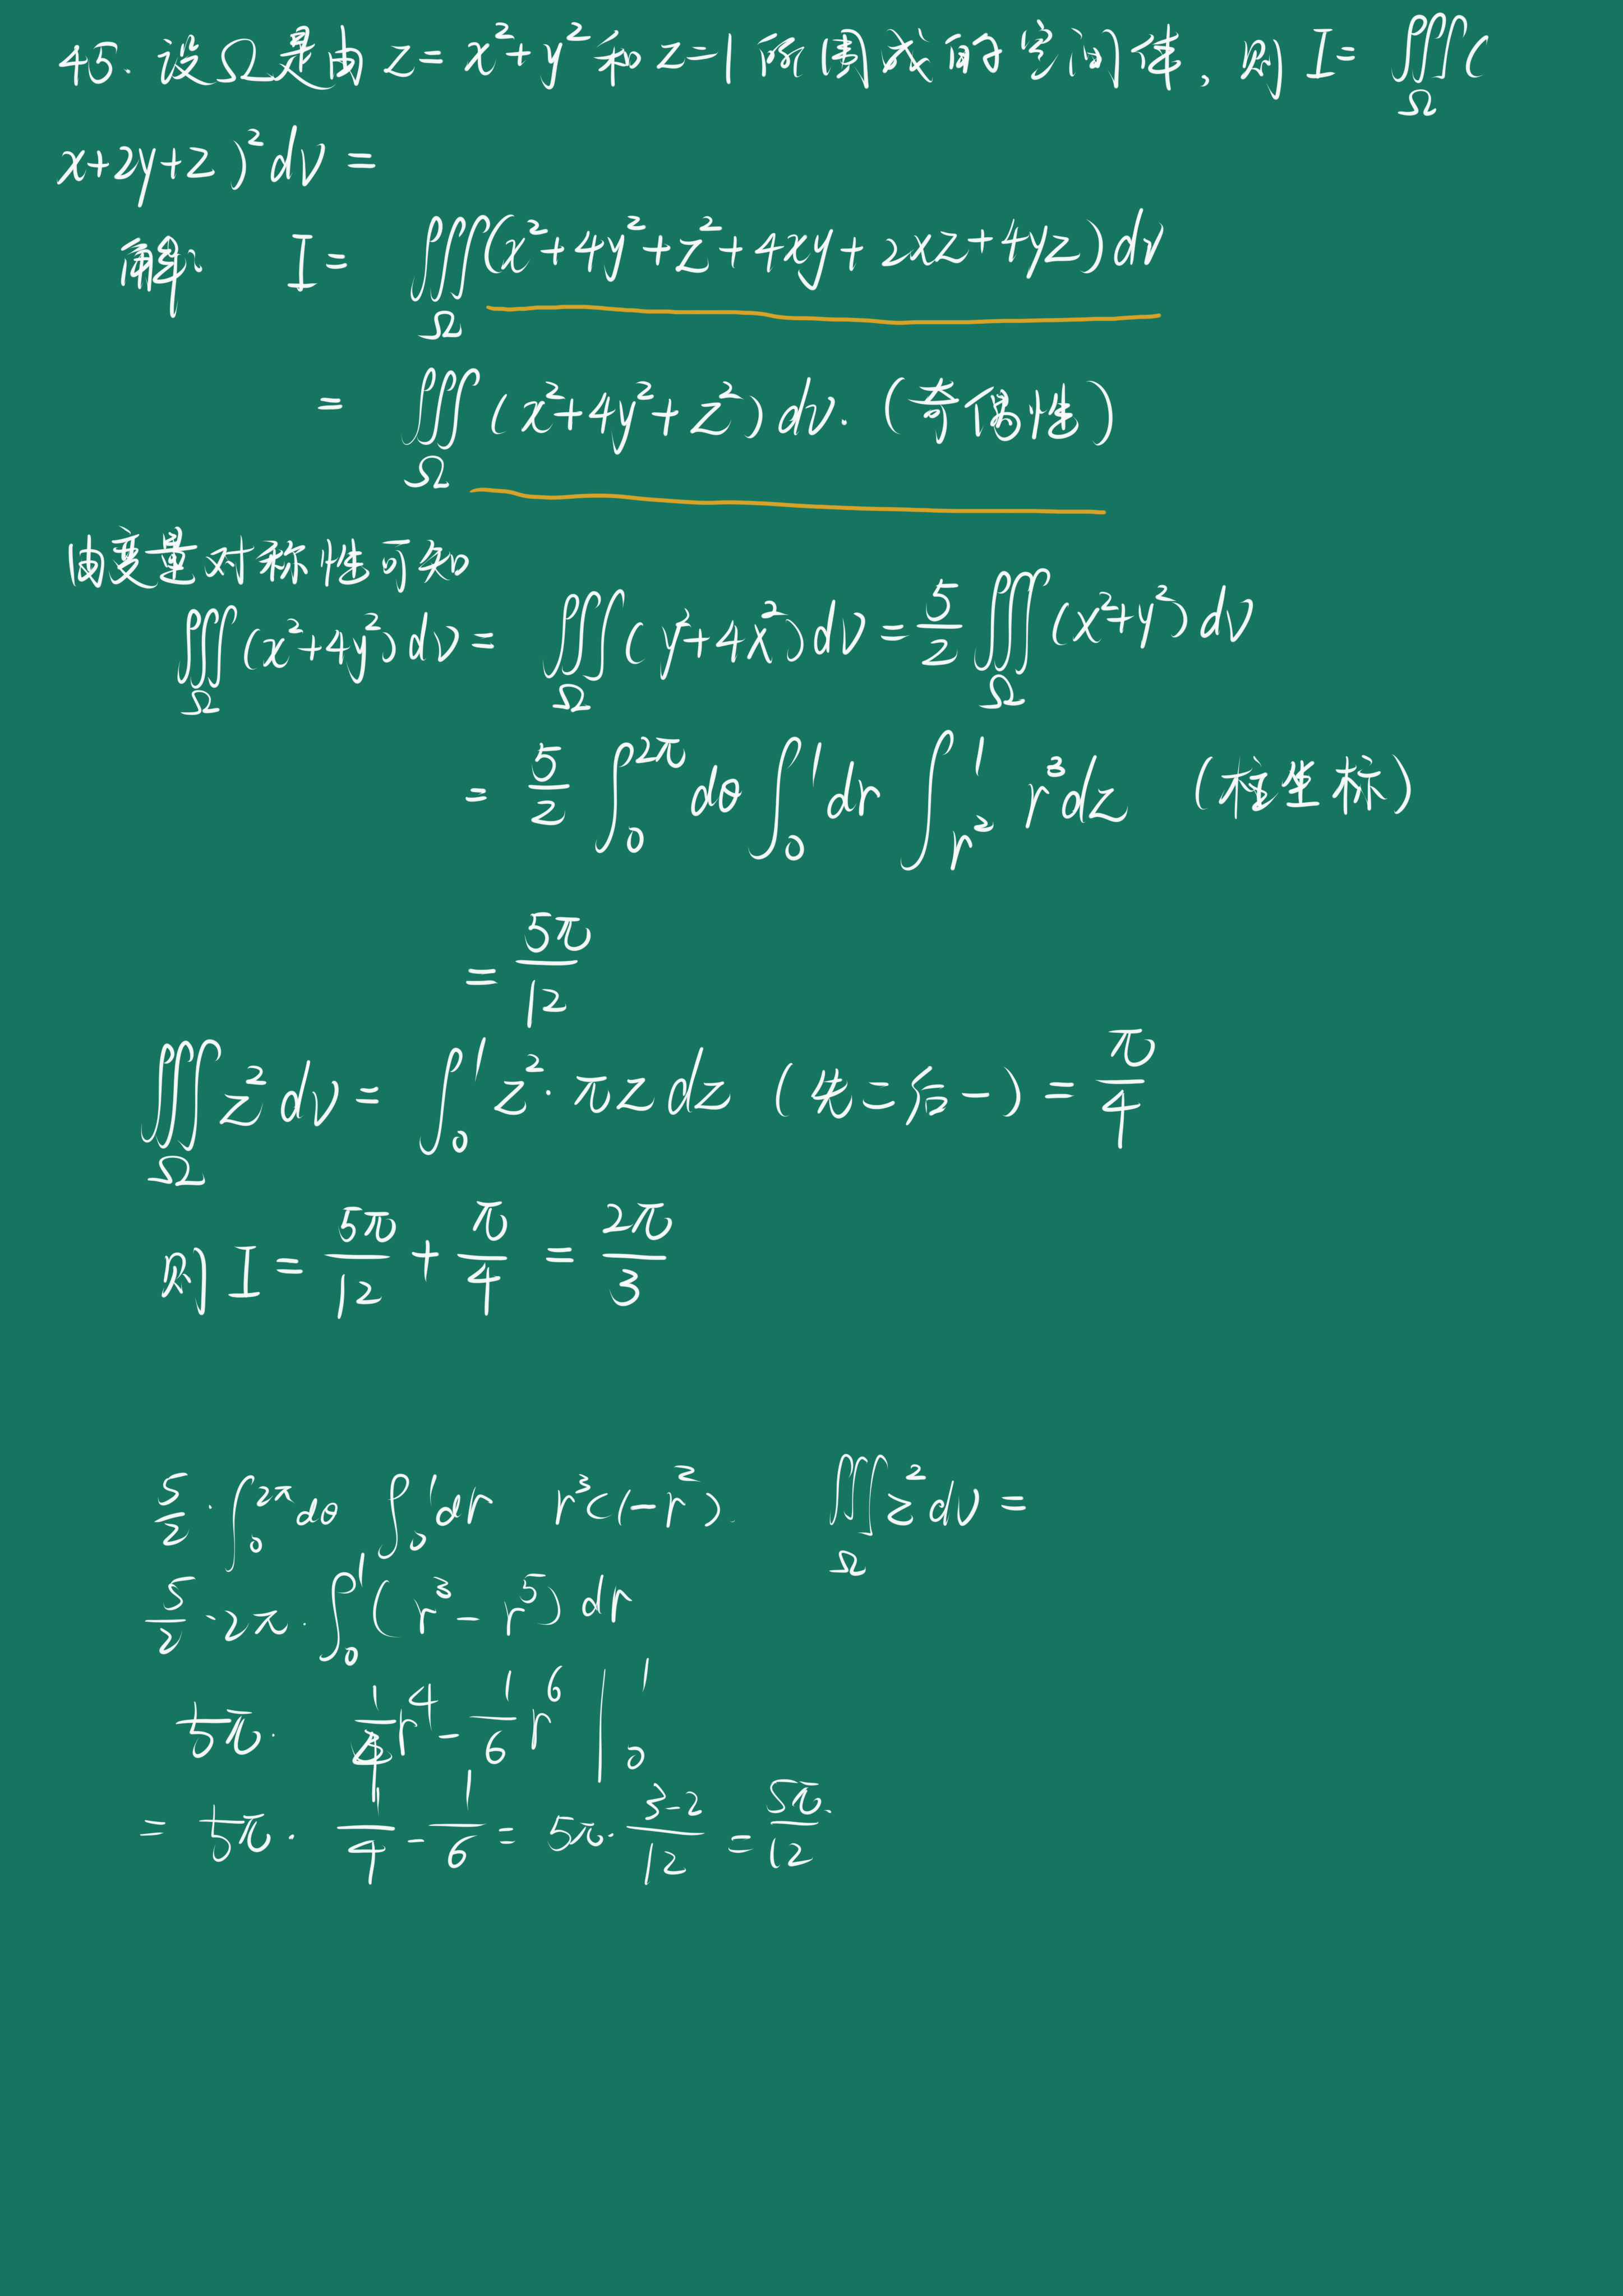 45. 设Ω是由 z= x²+y² 和 z=1 所围成的空间体, 则 I= ∭_Ω (
x+2y+z)² dv =
解: I= ∭_Ω (x²+4y²+z²+4xy+2xz+4yz) dv
= ∭_Ω (x²+4y²+z²) dv. (奇偶性)
由变量对称性可知
∭_Ω (x²+4y²) dv = ∭_Ω (y²+4x²) dv = 5/2 ∭_Ω (x²+y²) dv
= 5/2 ∫₀^{2π} dθ ∫₀^1 dr ∫_{r²}^1 r³ dz (柱坐标)
= 5π/12
∭_Ω z² dv = ∫₀^1 z²·πz dz (先二后一) = π/4
则 I = 5π/12 + π/4 = 2π/3
5/2 · ∫₀^{2π} dθ ∫₀^1 dr r³(1-r²). ∭_Ω z² dv =
5/2 · 2π · ∫₀^1 (r³ - r⁵) dr
5π · 1/4 r⁴ - 1/6 r⁶ |₀^1
= 5π · 1/4 - 1/6 = 5π · 3-2/12 = 5π/12